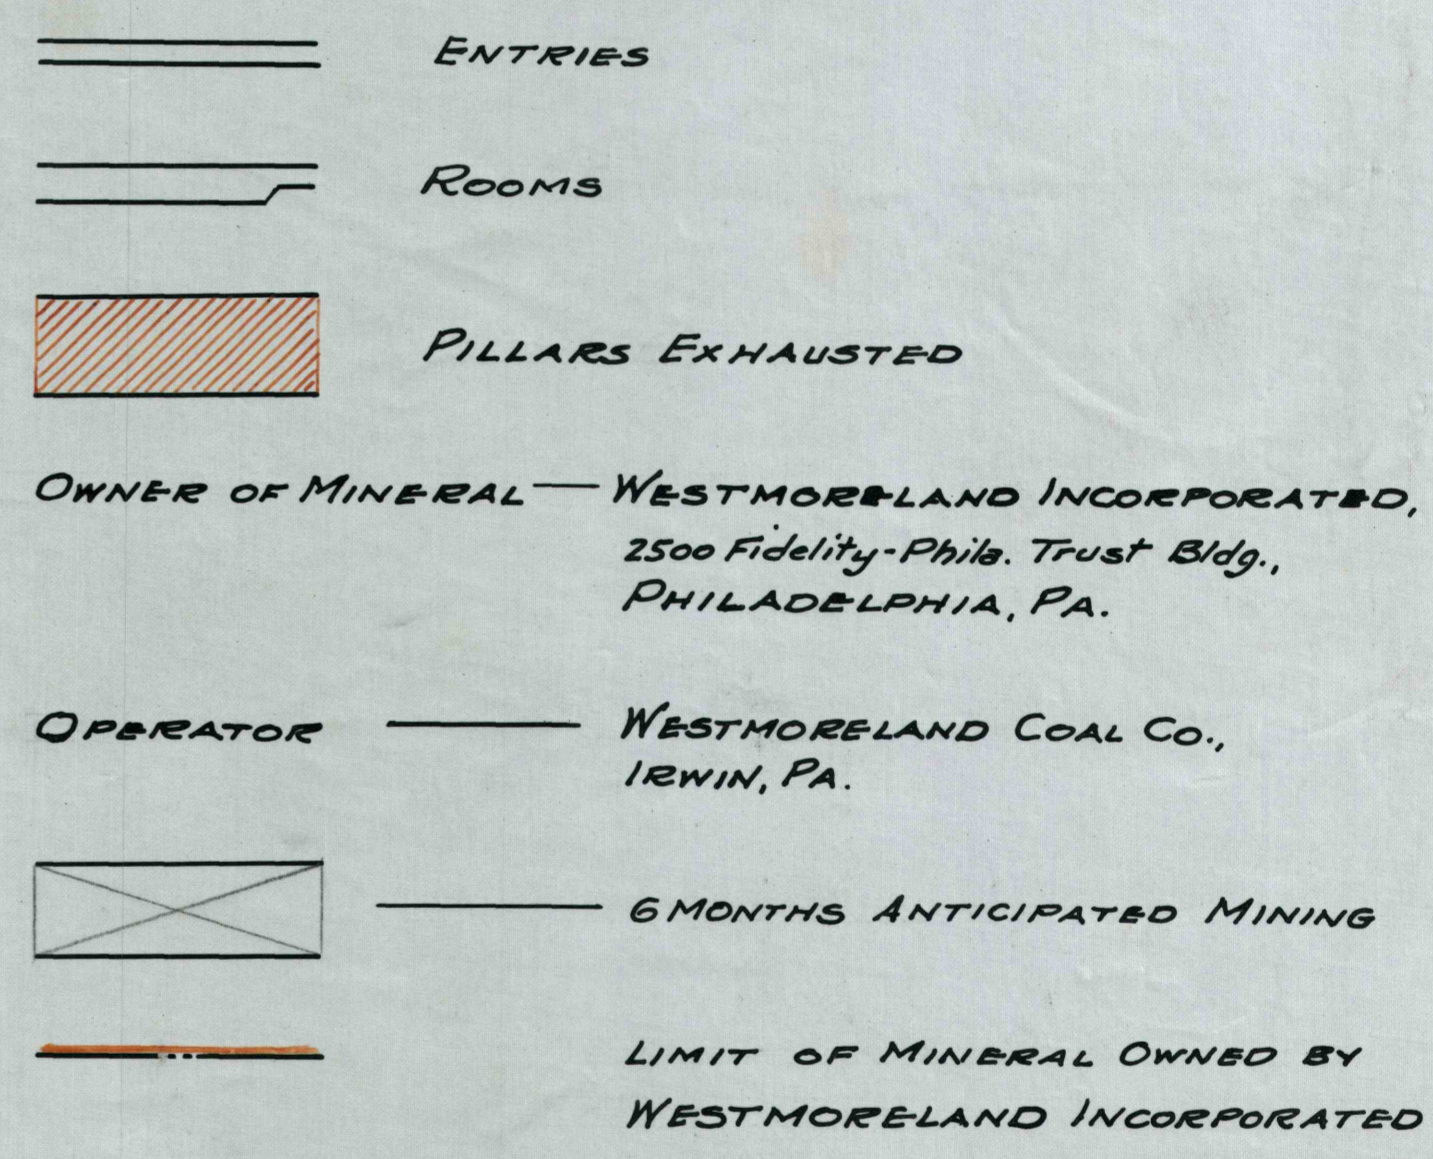 ENTRIES
ROOMS
PILLARS EXHAUSTED
OWNER OF MINERAL — WESTMORELAND INCORPORATED,
2500 Fidelity-Phila. Trust Bldg.,
PHILADELPHIA, PA.
OPERATOR — WESTMORELAND COAL CO.,
IRWIN, PA.
6 MONTHS ANTICIPATED MINING
LIMIT OF MINERAL OWNED BY
WESTMORELAND INCORPORATED